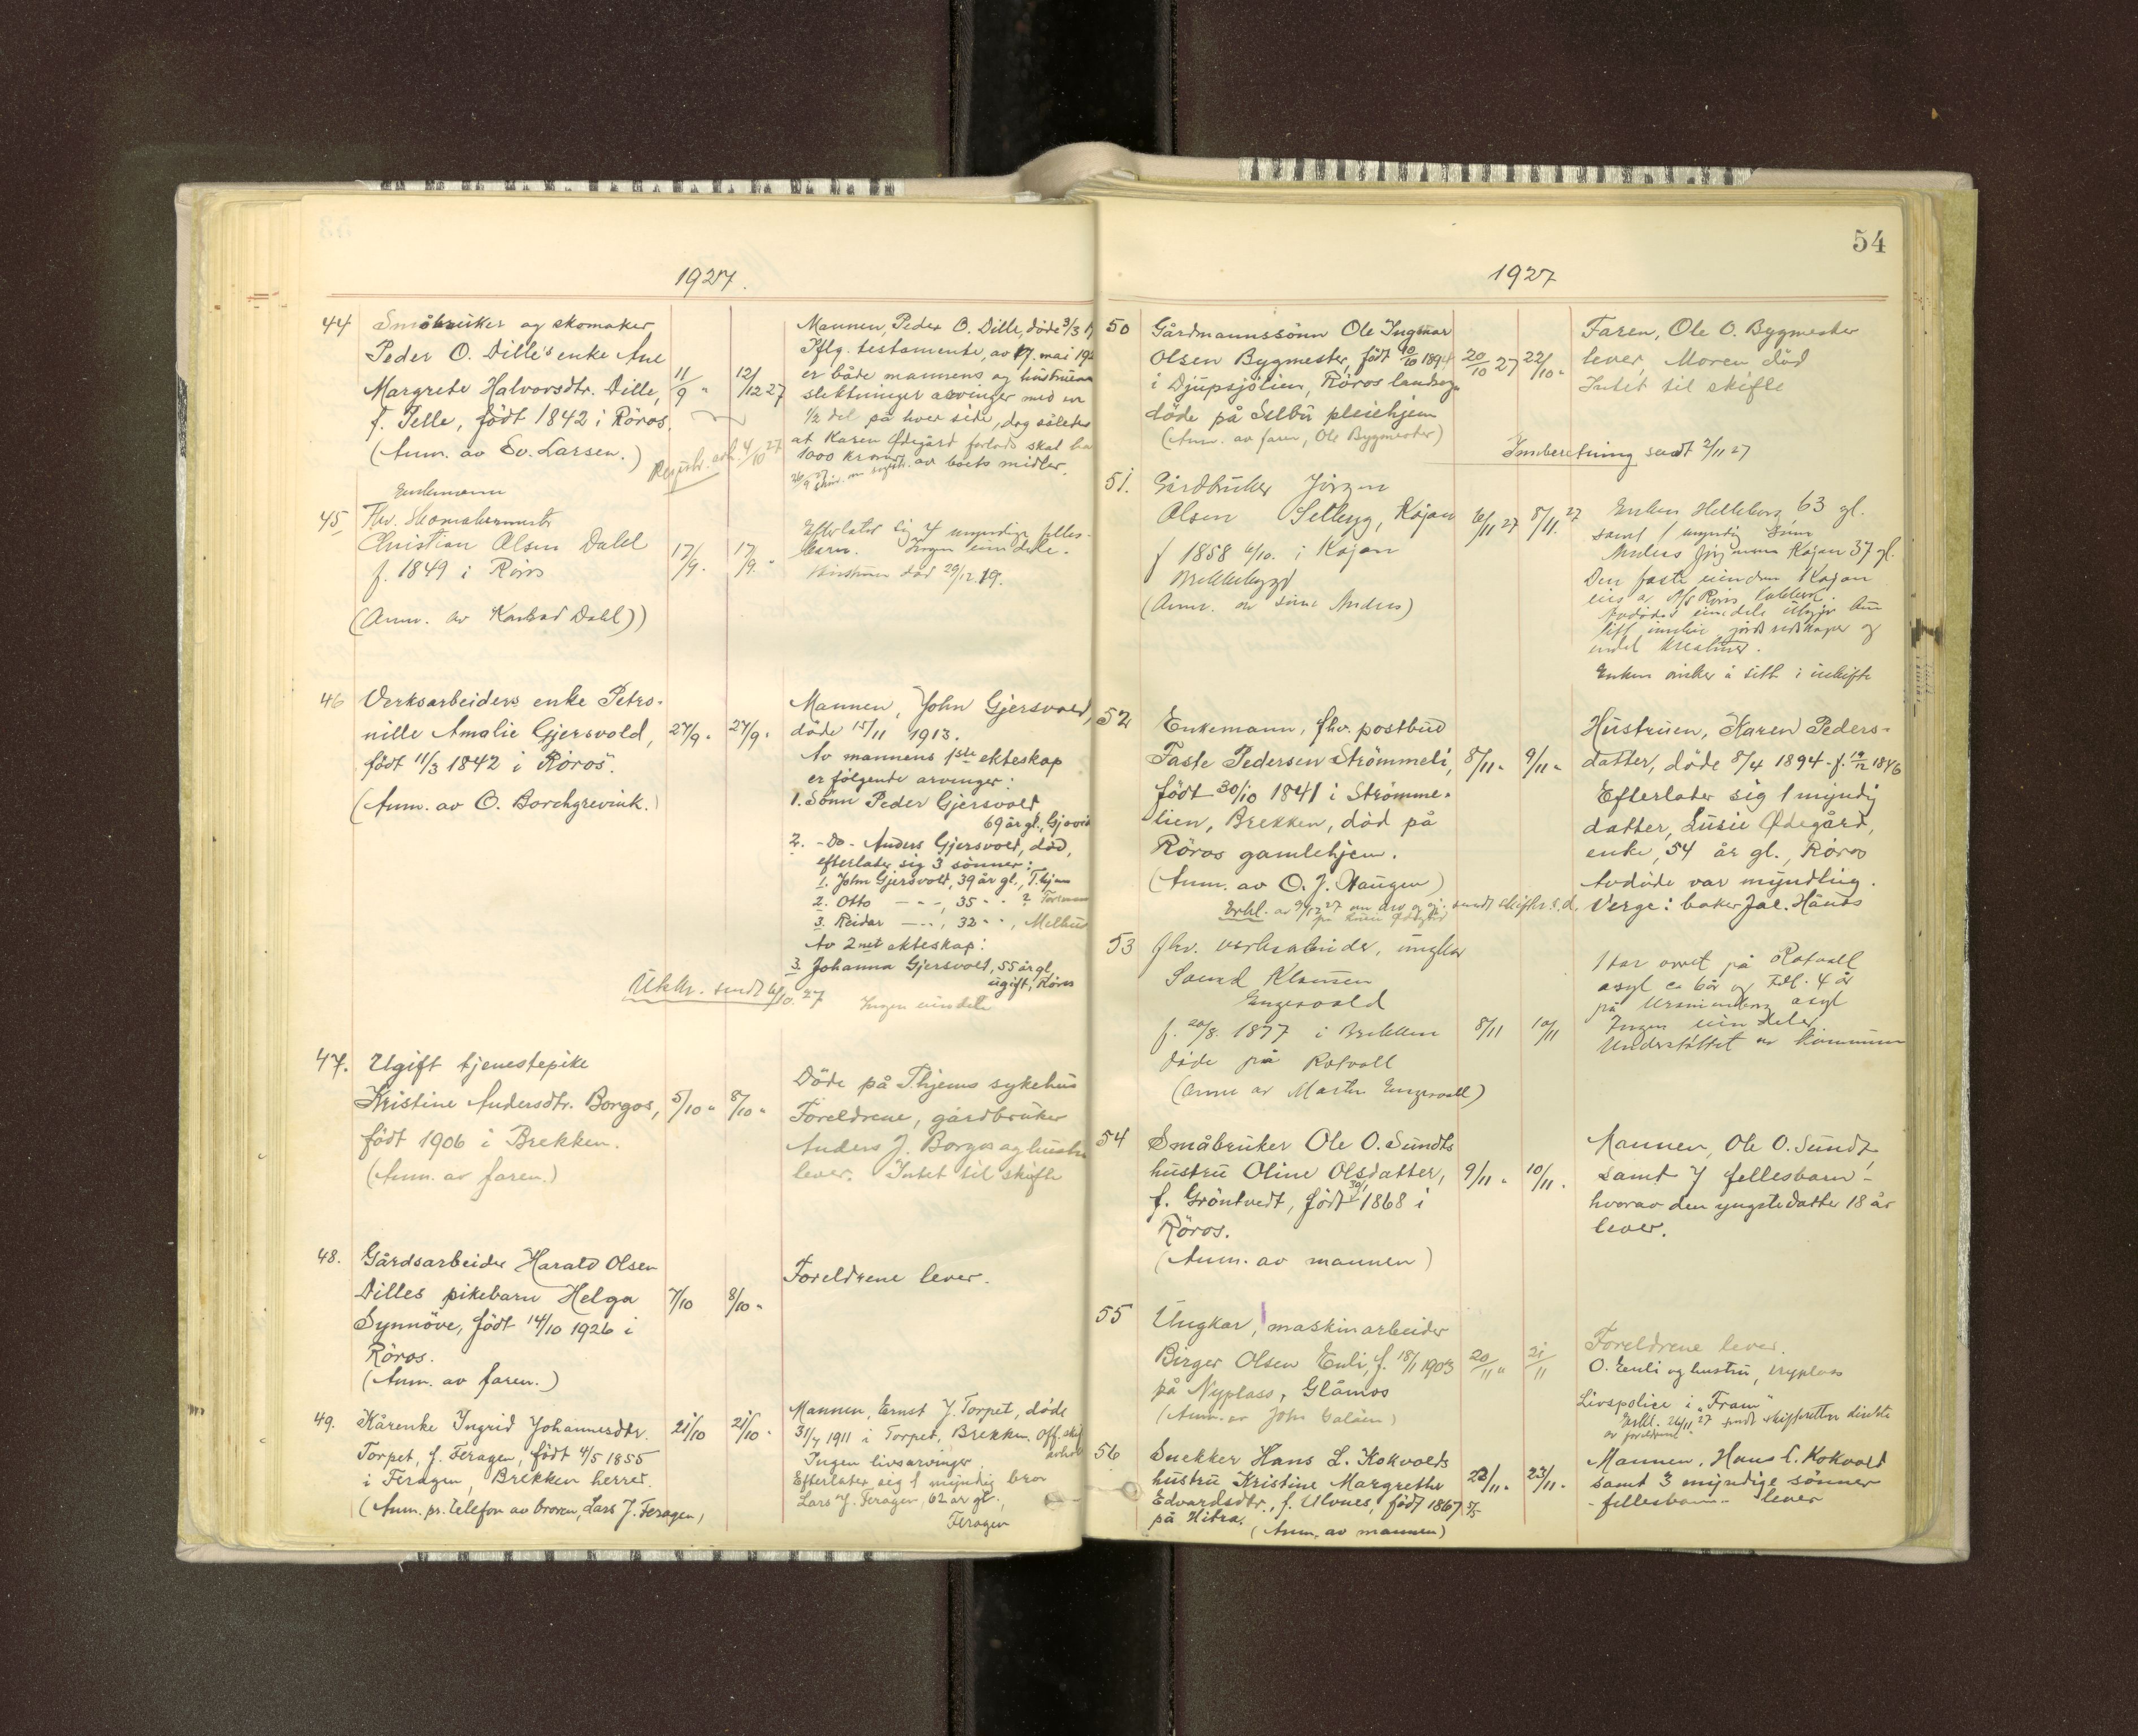 1927.
44 Småbruker og skomaker
Peder O. Dille's enke Ane
Margrete Halvorsdtr. Dille, 11/9 " 12/12 27
f. Pelle, født 1842 i Röros.
(Anm. av Ev. Larsen.)
Mannen, Peder O. Dille, döde 3/3 19
Iflg. testamente, av 17. mai 192
er både mannens og hustruens
slektninger arvinger med en
1/2 del på hver side, dog således
at Karen Ødegård forlods skal ha
1000 kroner av boets midler.
Registr. 4/10 27
Enkemann
45 Fhv. Skomakermester
Christian Olsen Dahl 17/9. 17/9. "
f. 1849 i Röros
(Anm. av Konrad Dahl))
Efterlater sig 4 myndige felles-
barn. Ingen eiendele.
Hustruen död 29/12 19.
46 Verksarbeiders enke Petro-
nille Amalie Gjersvold, 27/9 " 27/9 "
født 11/3 1842 i Röros.
(Anm. av O. Borchgrevink.)
Mannen, John Gjersvold,
döde 15/11 1913.
Av mannens 1ste ekteskap
er følgende arvinger:
1. Sönn Peder Gjersvold
69 år gl., Gjøvik
2. - Do - Anders Gjersvold, död,
efterlater sig 3 sönner:
1. John Gjersvold, 39 år gl., T.hjem
2. Otto — - -, 35 - - ?
3. Reidar — - -, 32 - - , Melhus
Av 2net ekteskap:
3. Johanna Gjersvold, 55 år gl.
ugift, Röros
sendt 6/10 27 Ingen eiendele
47. Ugift tjenestepike
Kristine Andersdtr. Borgos, 5/10 " 8/10 "
født 1906 i Brekken.
(Anm. av faren.)
Döde på T.hjems sykehus
Foreldrene, gårdbruker
Anders J. Borgos og hustru
lever. Intet til skifte
48. Gårdsarbeider Harald Olsen
Dilles pikebarn Helga 7/10 8/10 "
Synnöve, født 14/10 1926 i
Röros.
(Anm. av faren.)
Foreldrene lever.
49. Kårenke Ingrid Johannesdtr. 21/10 21/10 "
Torpet, f. Feragen, født 4/5 1855
i Feragen, Brekken herred.
(Anm. pr. telefon av broren, Lars J. Feragen,)
Mannen, Ernst J. Torpet, döde
31/7 1911 i Torpet, Brekken. Off. skif
Ingen livsarvinger
Efterlater sig 1 myndig bror
Lars J. Feragen, 62 år gl.,
Feragen
54
1927
50 Gårdmannssönn Ole Ingmar
Olsen Bygmester, født 10/10 1894 20/10 27 22/10 "
i Djupsjölien, Röros landsogn
döde på Selbu pleiehjem
(Anm. av faren, Ole Bygmester)
Faren, Ole O. Bygmester
lever, Moren död
Intet til skifte
Innberetning sendt 2/11 27
51. Gårdbruker Jörgen
Olsen Kojan 6/11 27 8/11. 27
f 1858 6/10. i Kojan
Brekkebygd
(Anm. av sönn Anders)
Enken Helleborg 63 gl.
samt 1 myndig sönn
Anders Jörgensen Kojan 37 gl.
Den faste eiendom Kojan
eies av A/S Röros
eiendele utgjør kun
litt innbo, jordredskaper og
endel kreaturer.
Enken önsker å sitte i uskifte
52 Enkemann, fhv. postbud
Taste Pedersen Strömmeli, 8/11 " 9/11 "
født 30/10 1841 i Strömme-
lien, Brekken, död på
Röros gamlehjem.
(Anm. av O. J. Haugen)
Hustruen, Karen Peders-
datter, döde 8/4 1894 - f. 1846
Efterlater sig 1 myndig
datter, Lusie Ødegård,
enke, 54 år gl., Röros
Avdöde var myndling.
Verge: baker Jac. Hånes
53 fhv. verksarbeider, ungkar
Klausen
Engesvold
f. 20/8. 1877 i Brekken 8/11 10/11
döde på Rotvoll
(Anm av Martin Engesvoll)
Har vært på Rotvoll
asyl ca 6 år og 4 år
på asyl
Ingen eiendeler
Understöttet av kommunen
54 Småbruker Ole O. Sundts
hustru Oline Olsdatter, 9/11 " 10/11 "
f. Gröntvedt, født 30/1 1868 i
Röros.
(Anm. av mannen)
Mannen, Ole O. Sundt,
samt 7 fellesbarn -
hvorav den yngste datter 18 år
lever.
55 Ungkar, maskinarbeider
Birger Olsen Euli, f. 18/1 1903 20/11 " 21/11
på Nyplass, Glåmos
(Anm. av John Galåen)
Foreldrene lever.
O. Euli og hustru, Nyplass
Livspolice i "Fram"
Erkl. 26/11 27 sendt skifteretten direkte
av foreldrene
56 Snekker Hans L. Kokvolds
hustru Kristine Margrethe 22/11 " 23/11 "
Edvardsdtr., f. Ulvnes, født 1867 5/5
på Hitra. (Anm. av mannen)
Mannen, Hans L. Kokvold
samt 3 myndige sönner
- fellesbarn - lever